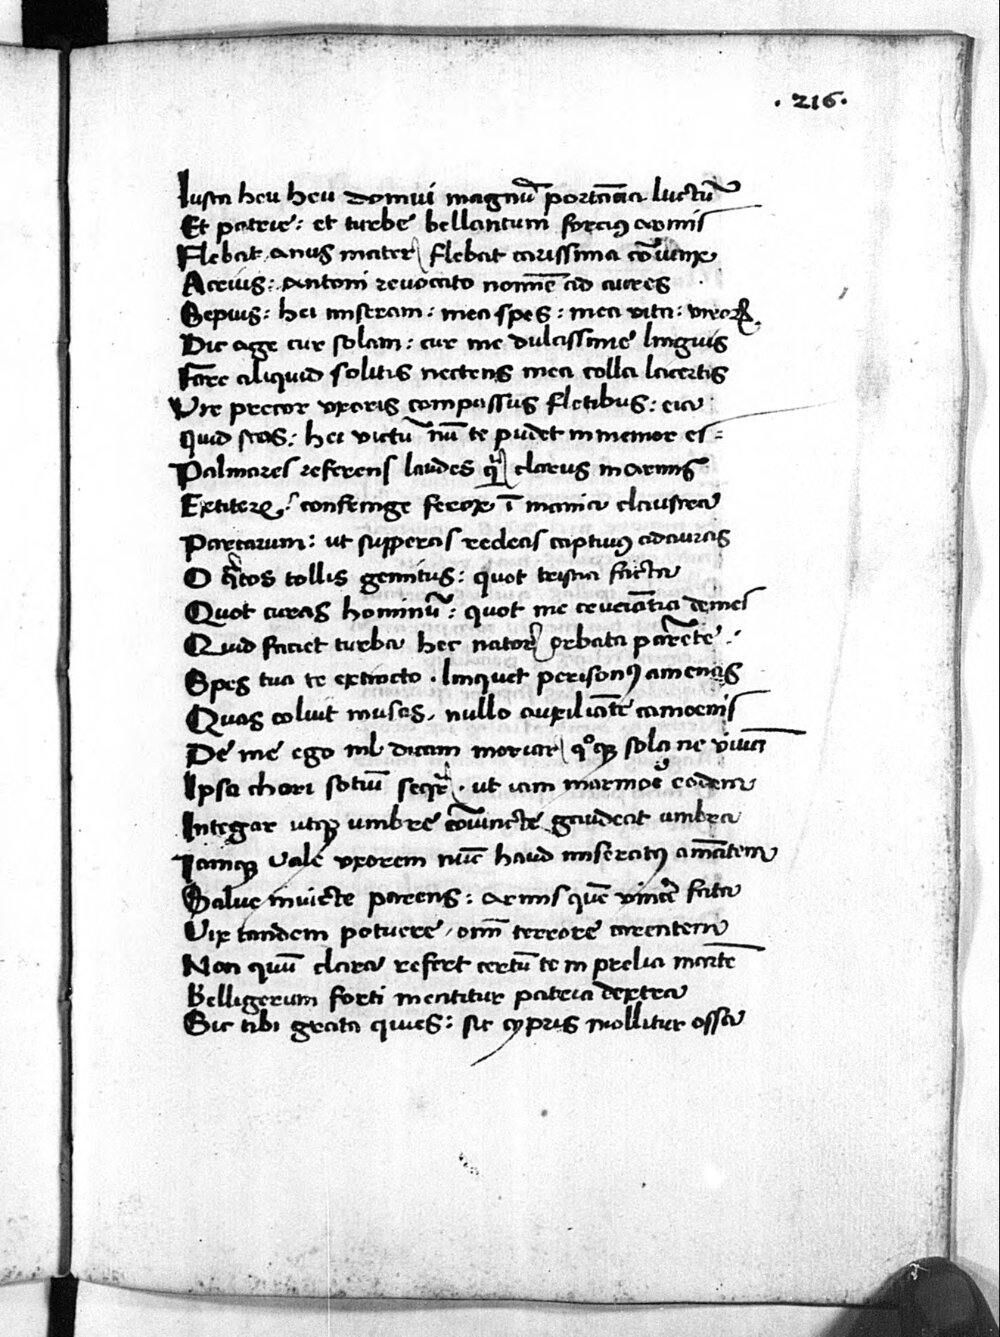 . 216 .
Iusta heu heu domui magnū portātia luctū
Et patrie: et turbe bellantum forciꝰ armis
Flebat anus mater / flebat carissima cōiunx
Acrius: Antoni revocato nomīe ad aures
Sepius: hei miseram: mea spes: mea vita: uxorꝝ
Dic age cur solam: cur me dulcissime linguis
Fare aliquid solitis nectens mea colla lacertis
Vir precor uxoris compassus fletibus: eia
quid stas: hei victū nū te pudet inmemor es:
Palmares referens laudes / clarus in armis
Extiterꝭ? confringe ferox ī mania claustra
Parcarum: ut supperas redeas captiuꝰ ad auras
O quātos tollis gemitus: quot tristia facta
Quot curas hominū: quot me cruciātia demes
Quid faciet turba hec nator orbata parēte.
Spes tua te extincto . linquet perisonꝰ amenas
Quas coluit musas, nullo auxiliāte camoenis
De me ego nil dicam moriar / sola ne vivā
Ipsa chori sotiū seqr̄ . ut iam marmor̄ eodem
Integar utqꝫ umbre cōiuncte gaudeat umbra
Iamqꝫ vale uxorem nūc haud miseratꝰ amātem
Salve invicte parens: armis quē vincēr fata
Vix tandem potuere, omī terrore carentem
Non quū clara refert certū te in prelia martē
Belligerum forti mentitur patria dextra
Sic tibi grata quies: sic cypris mollitur ossa